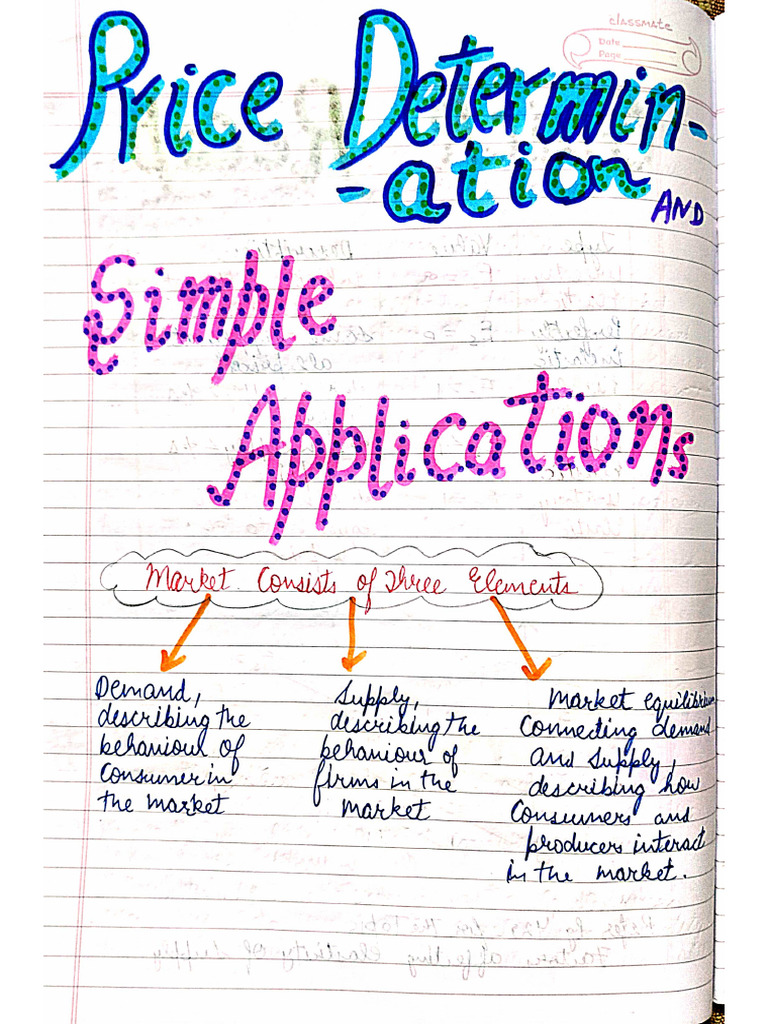 classmate
Date
Page
Price Determin-
-ation AND
Simple
Applications
Market Consists of Three Elements
Demand,
describing the
behaviour of
Consumer in
the market
Supply,
describing the
behaviour of
firms in the
market
Market equilibrium
Connecting demand
and supply,
describing how
Consumers and
producers interact
in the market.